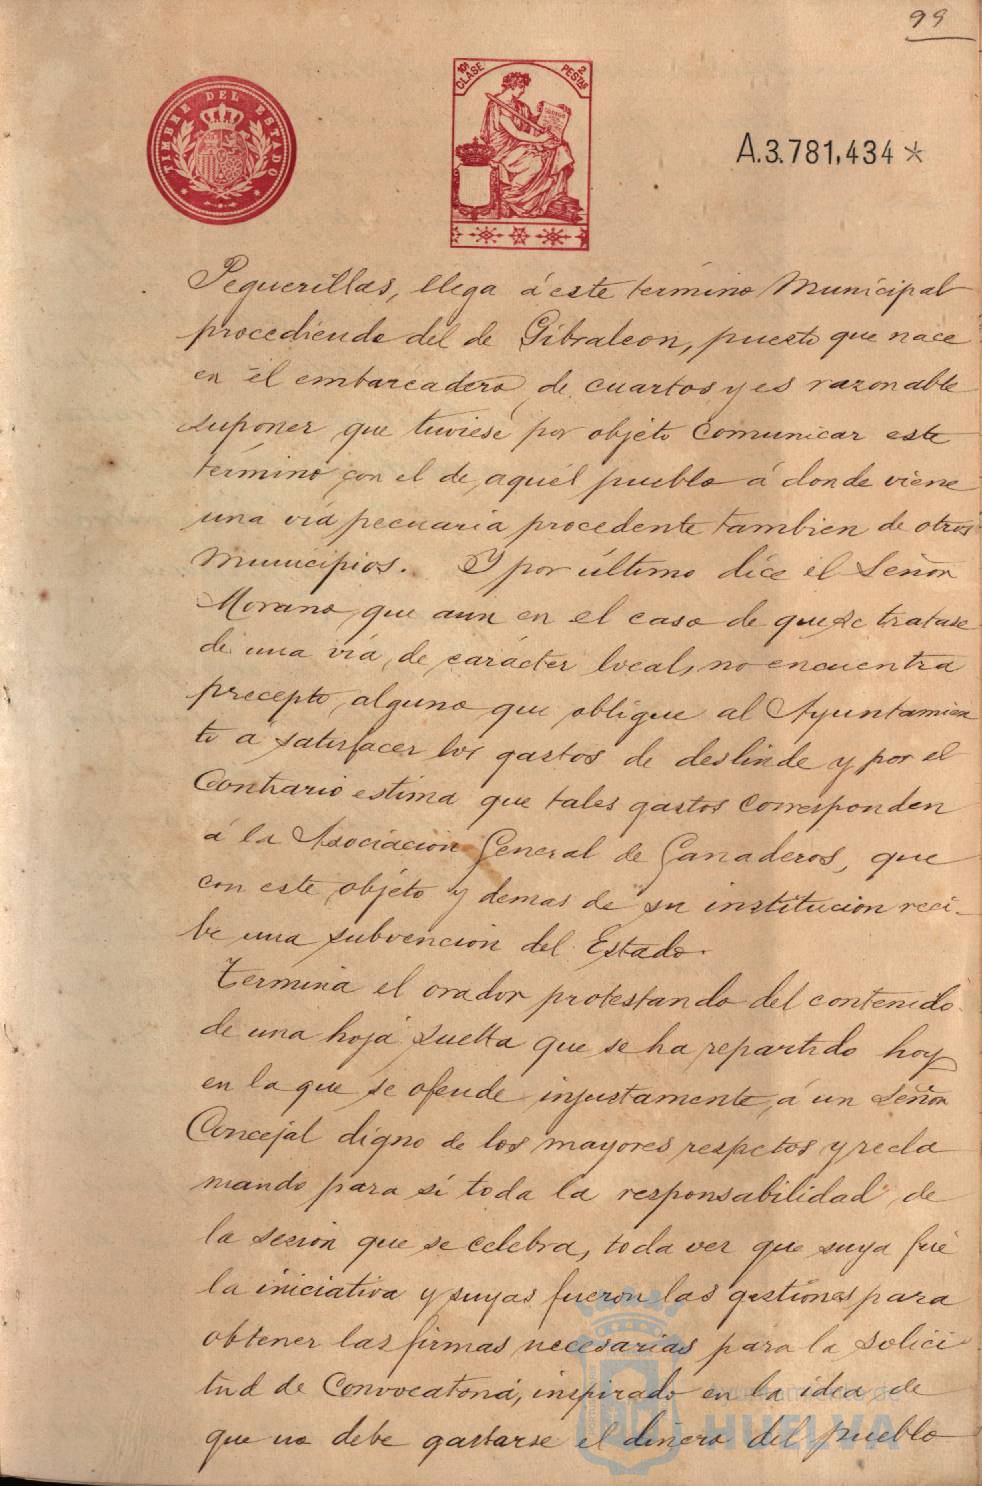 99
TIMBRE DEL ESTADO
10ª CLASE
2 PESTAS
A.3.781,434 *
Peguerillas, llega á este término Municipal
procediendo del de Gibraleon, puesto que nace
en el embarcadero de cuartos y es razonable
suponer que tuviese por objeto comunicar este
término con el de aquél pueblo á donde viene
una vía pecuaria procedente tambien de otros
Municipios. Y por último dice el Señor
Morano, que aun en el caso de que se tratase
de una vía de carácter local, no encuentra
precepto alguno que obligue al Ayuntamien
to a satisfacer los gastos de deslinde y por el
Contrario estima que tales gastos corresponden
á la Asociación General de Ganaderos, que
con este objéto y demas de su institución reci-
be una subvencion del Estado.
Termina el orador protestando del contenido
de una hoja suelta que se ha repartido hoy
en la que se ofende injustamente, á un Señor
Concejal digno de los mayores respetos y recla
mando para sí toda la responsabilidad de
la sesión que se celebra, toda vez que suya fué
la iniciativa y suyas fueron las gestiones para
obtener las firmas necesarias para la solici
tud de Convocatoria, inspirado en la idea de
que no debe gastarse el dinero del pueblo
Ayuntamiento de
HUELVA